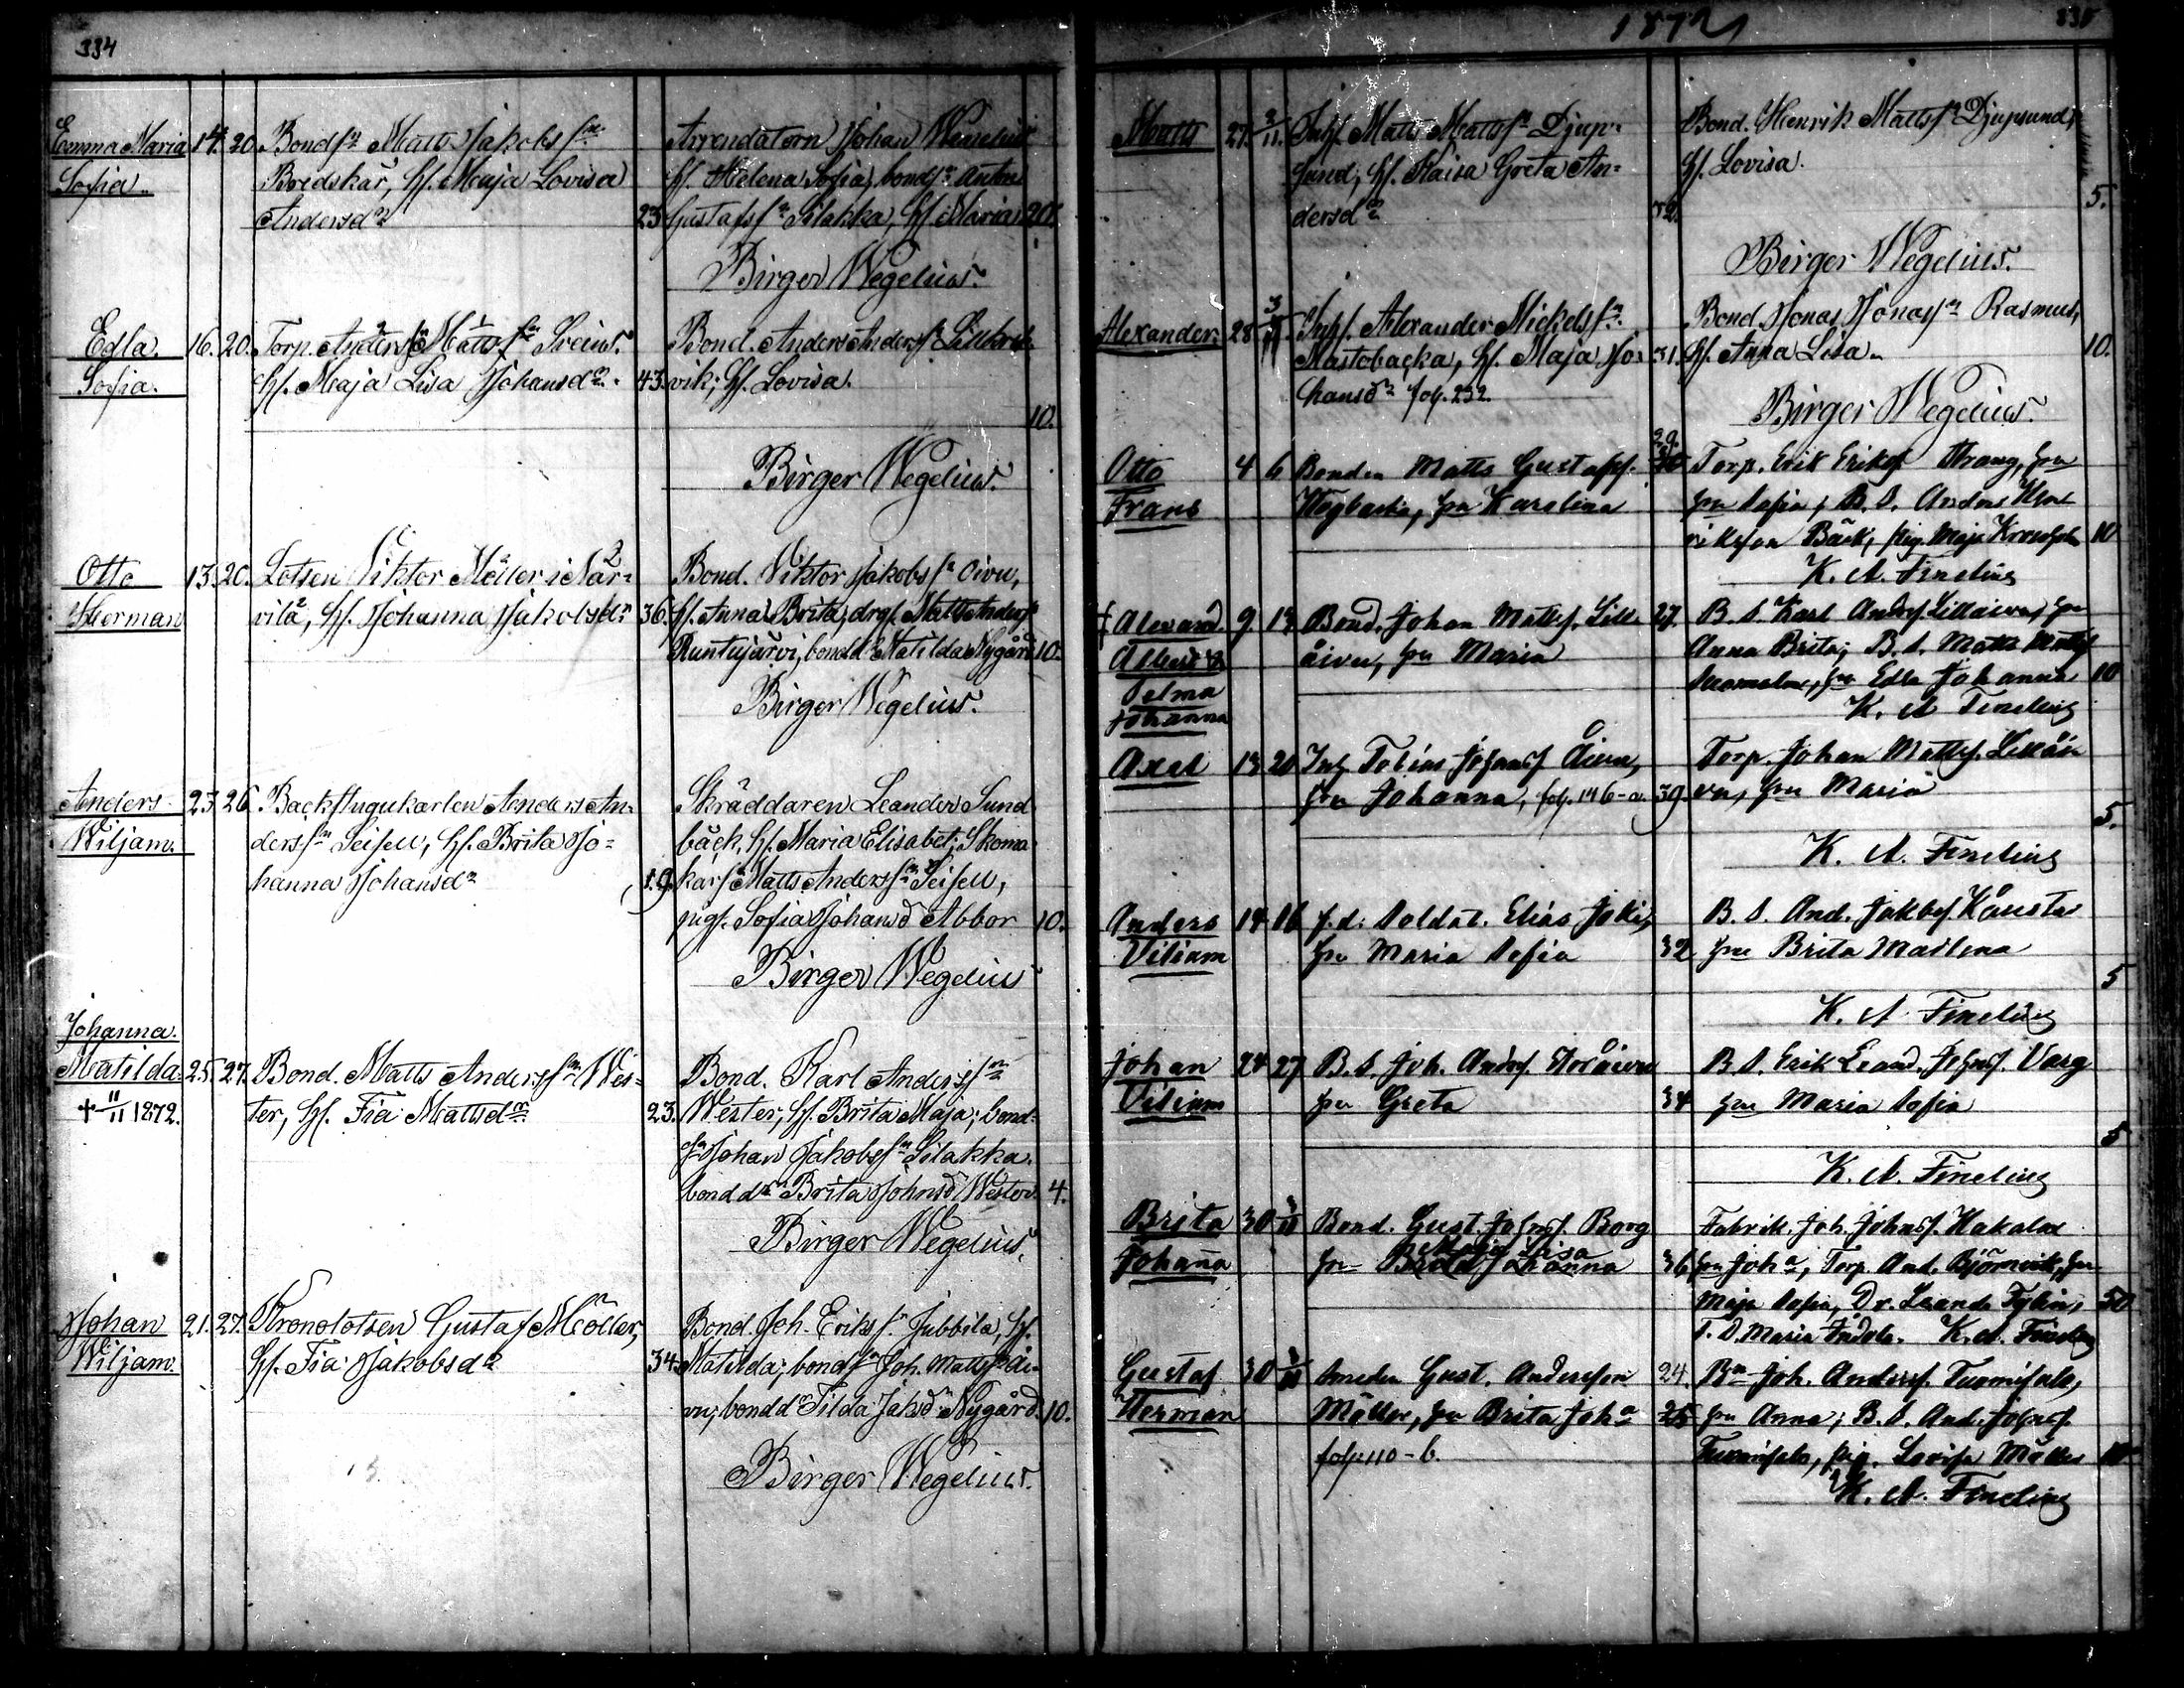 334
Emma Maria 14. 20. Bondsn Matts Jakobsson
Sofia. Bredskär, hf. Maja Lovisa
Andersdr 23
Arrendatorn Johan Wenelius
hf. Helena Sofia, bondsn Anton
Gustafsn Silakka, hf Maria 20.
Birger Wegelius.
Edla. 16. 20. Torp. Anders Mattssn
Sofia. hf. Maja Lisa Johansdr. 43.
Bond. Anders Andersn
vik; hf. Lovisa.
10.
Birger Wegelius.
Otto 13. 20. Lotsen Viktor Möller i När-
Herman vilä, hf. Johanna Jakobsdr 36.
Bond. Viktor Jakobsn Oivu,
hf. Anna Brita, drgf. Matts Andersn
Runtujärvi, bondd. Matilda Nygård 10.
Birger Wegelius.
Anders 23. 26. Backstugukarlen Anders An-
Wiljam. derssn Seisell, hf. Brita Jo-
hanna Johansdr 19.
Skräddaren Leander Sund
bäck, hf. Maria Elisabet; Skoma
karsn Matts Anderssn Seisell,
pigf. Sofia Johansd Abbor 10.
Birger Wegelius
Johanna.
Matilda. 25. 27. Bond. Matts Anderssn Wes-
+ 11/11 1872. ter, hf. Fia Mattsdr. 23.
Bond. Karl Anderssn
Wester, hf. Brita Maja; bond-
sn Johan Jakobssn Silakka.
bonddr Brita Johnsd Wester 4.
Birger Wegelius.
Johan 21. 27. Kronolotsen Gustaf Möller,
Wiljam. hf. Fia Jakobsdr 34.
Bond. Joh. Erikssn Jubbila, hf.
Matilda; bondsn Joh. Mattssn Åi-
vu; bonddr Tilda Jakd Nygård. 10.
Birger Wegelius.
1872
335
Matts 27. 3/11. Inhs. Matts Mattssn Djup-
sund; hf. Kaisa Greta An-
dersdr
Bond. Henrik Mattssn Djupsund,
hf. Lovisa.
5.
Birger Wegelius.
Alexander. 28 Inhs. Alexander Mickelssn.
Mastobacka, hf. Maja Jo- 31.
hansdr fol. 232.
Bond. Jonas Jonassn Rasmus,
hf. Anna Lisa. 10.
Birger Wegelius.
Otto 4 6 Bonden Matts Gustafss.
Frans hu Karolina
Torp. Erik Erikss hu
hu Sofia; B. S. Anders Hen
riksson Bäck, pig. Maja 10
K. A. Finelius
+ Alexand. 9 13 Bond. Johan Mattss. Lill 27.
åivu, hu Maria
Selma
Johanna
B. S. Karl Andrs. Lillåivu, hu
Anna Brita; B. S. Matts Mattss
hu Edla Johanna 10
K. A Finelius
Axel 13 20 Inh Tobias Johanss Åivu,
hu Johanna, fol. 146-a. 39.
Torp. Johan Mattss. Lillåi
vu, hu Maria
5.
K. A. Finelius
Anders 14 16 f.d. Soldat. Elias Joki,
Viliam hu Maria Sofia 32
B. S. And. Jakbss. Kåusta
hu Brita Mailena
5
K. A Finelius
Johan 24 27 B. S. Joh. Andrs. Storåivu
Viliam hu Greta 34
B. S. Erik Leand. Johnss. Varg
hu Maria Sofia
5
K. A. Finelius
Brita 30 Bond. Gust. Johnss. Borg
Maja Lisa
Johanna hu Brita Johanna 36
Fabrik. Joh. Johnss. Hakala
hu Joha, Torp. And. Björnvik, hu
Maja Sofia, Dr. Leand. 50
T. D. Maria K. A. Finelius
Gustaf 30 Smeden Gust. Andersson 24.
Herman Möller, hu Brita Joha 25
fol. 110-b.
Bn Joh. Anderss. Tuomisalo,
hu Anna; B. S. And. Johnss.
Tuomisalo, pig. Lovisa Möller 10
K. A. Finelius